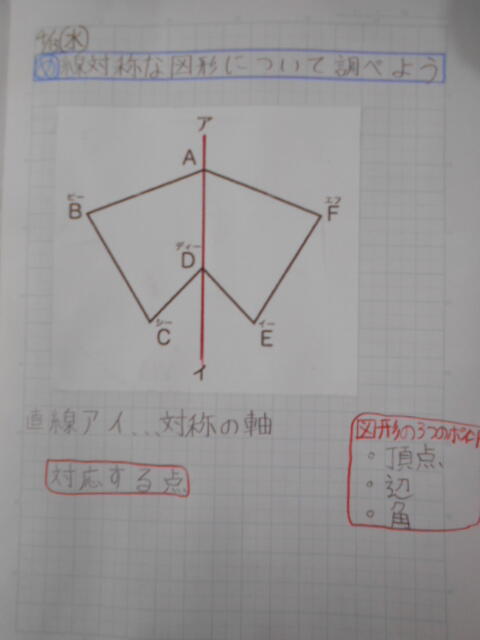 (水)
線対称な図形について調べよう
ア
A
ビー
B
エフ
F
ディー
D
シー
C
イー
E
イ
直線アイ...対称の軸
図形の3つのポイント
対応する点
・頂点
・辺
・角